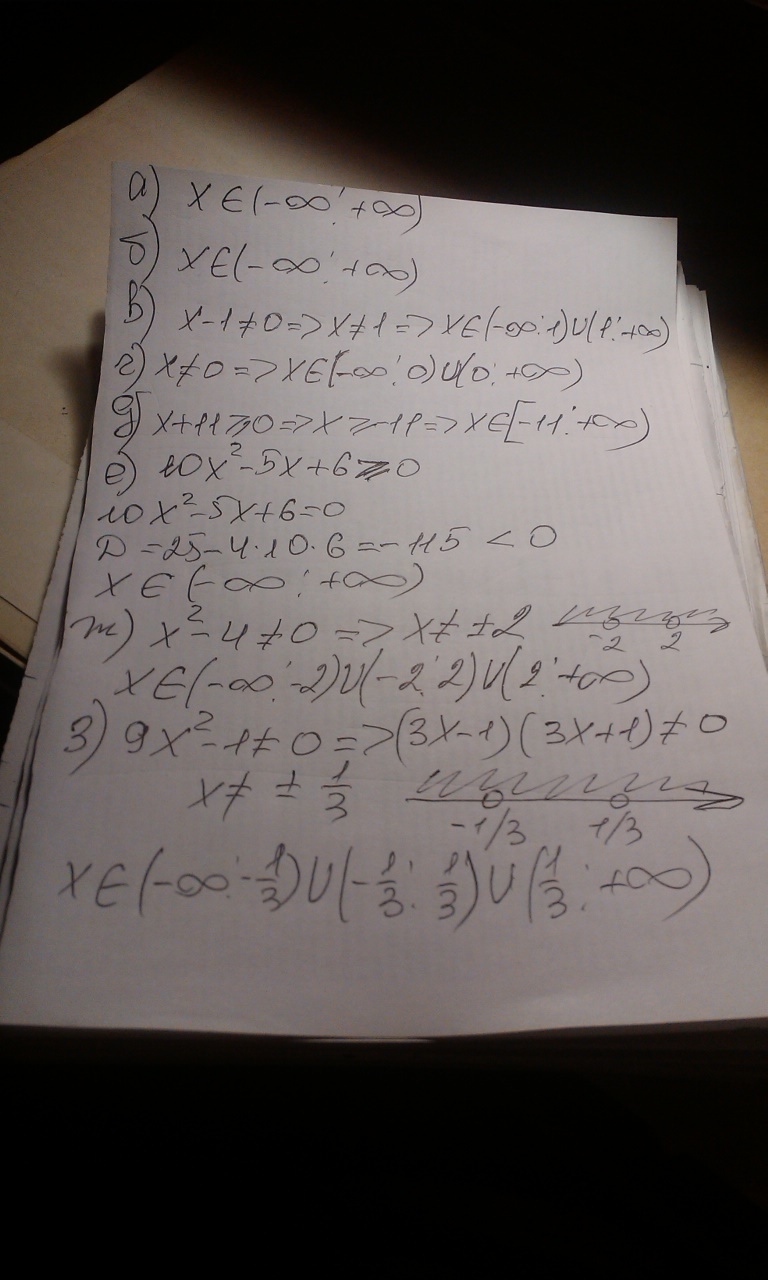 а) X∈(-∞; +∞)
б) X∈(-∞; +∞)
в) X-1≠0=>X≠1=>X∈(-∞;1)U(1;+∞)
г) X≠0=>X∈(-∞; 0)U(0; +∞)
д) X+11⩾0=>X⩾-11=>X∈[-11;+∞)
е) 10X²-5X+6⩾0
10X²-5X+6=0
D=25-4·10·6=-115<0
X∈(-∞; +∞)
ж) X²-4≠0=>X≠±2
-2 2
X∈(-∞;-2)U(-2;2)U(2;+∞)
З) 9X²-1≠0=>(3X-1)(3X+1)≠0
X≠ ± 1/3
-1/3 1/3
X∈(-∞;-1/3)U(-1/3; 1/3)U(1/3; +∞)